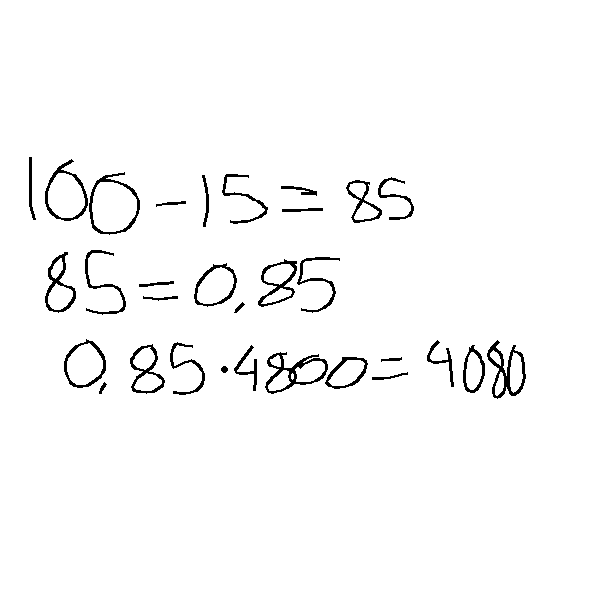 100-15=85
85=0,85
0,85·4800=4080